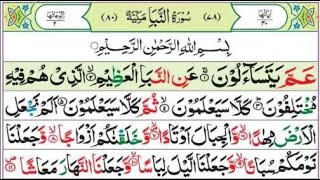 (٧٨) سُوْرَةُ النَّبَاِ مَكِّيَّةٌ (٨٠)
بِسْمِ اللّٰهِ الرَّحْمٰنِ الرَّحِيْمِ
عَمَّ يَتَسَآءَلُوْنَ ۚ عَنِ النَّبَاِ الْعَظِيْمِ ۙ الَّذِىْ هُمْ فِيْهِ
مُخْتَلِفُوْنَ ؕ كَلَّا سَيَعْلَمُوْنَ ۙ ثُمَّ كَلَّا سَيَعْلَمُوْنَ اَلَمْ نَجْعَلِ
الْاَرْضَ مِهٰدًا ۙ وَّالْجِبَالَ اَوْتَادًا ۪ۙ وَّخَلَقْنٰكُمْ اَزْوَاجًا ۙ وَّجَعَلْنَا
نَوْمَكُمْ سُبَاتًا ۙ وَّجَعَلْنَا الَّيْلَ لِبَاسًا ۙ وَّجَعَلْنَا النَّهَارَ مَعَاشًا ۪